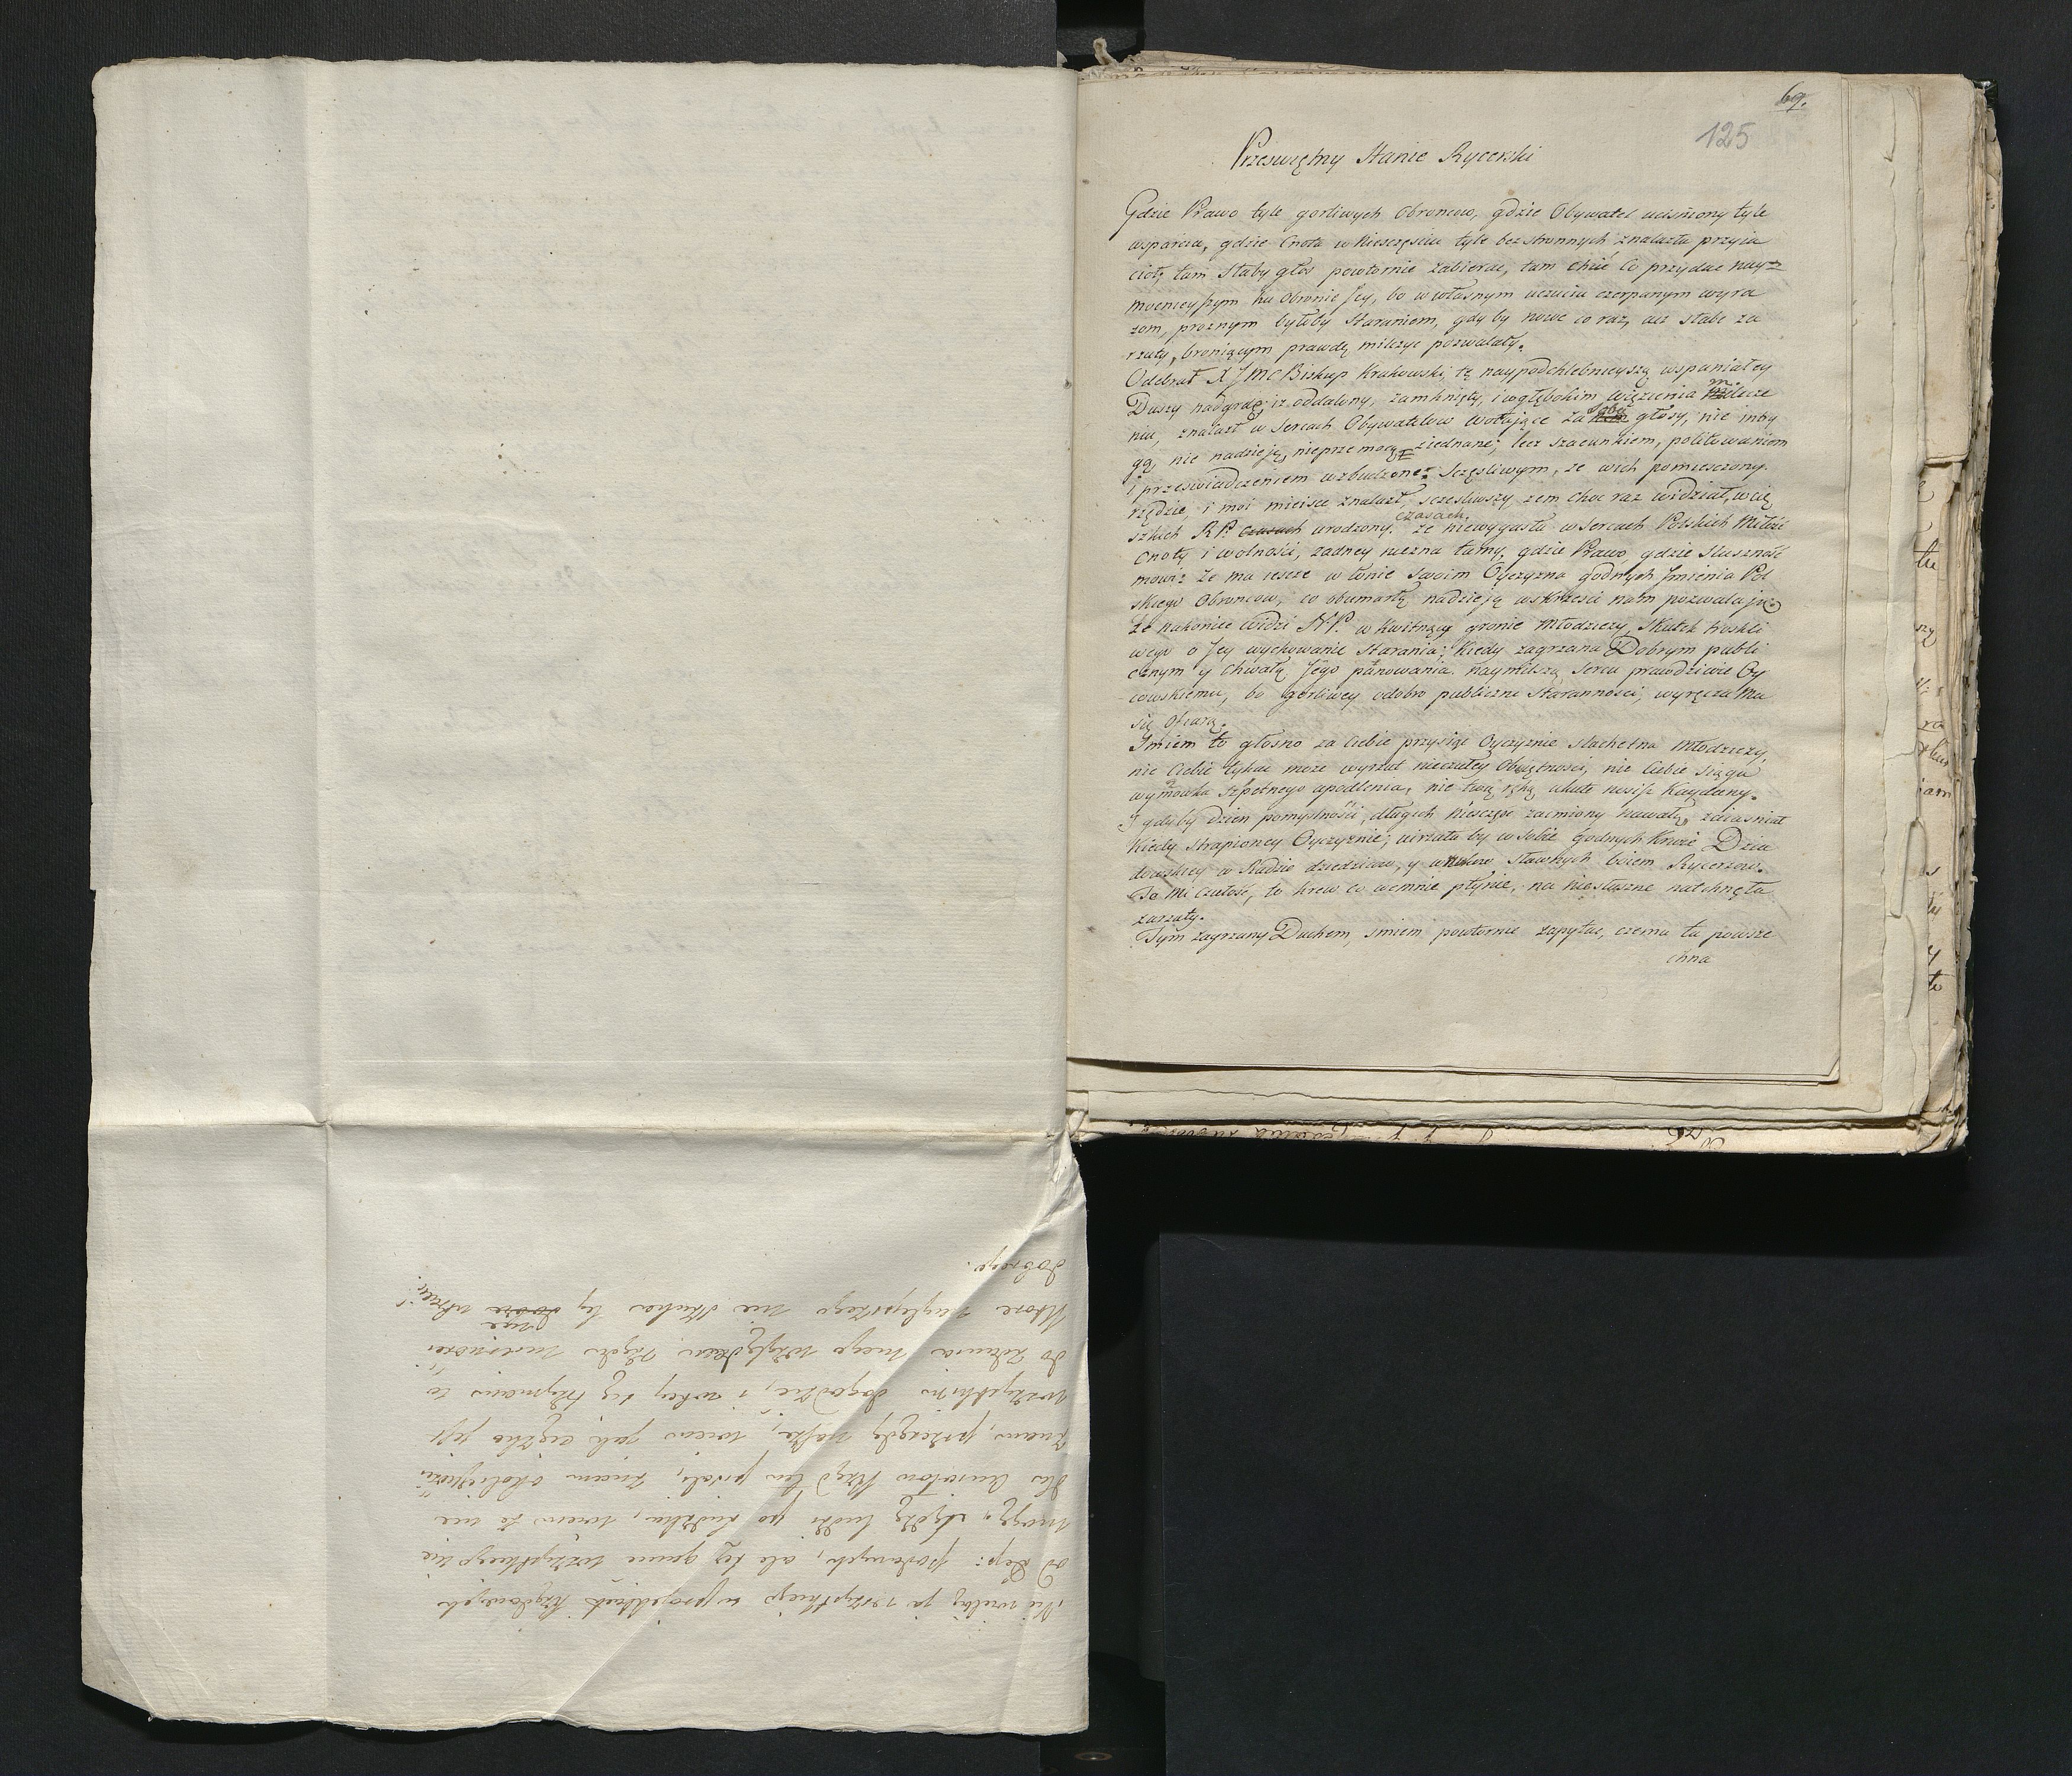 69.
125
Przeswiętny Stanie Rycerski
Gdzie Prawo tyle gorliwych Obroncow, gdzie Obywatel ucisniony tyle
wsparcia, gdzie Cnota w Niesczęsciu tyle bezstronnych znalazła przyia
cioł, tam Słaby głos powtornie zabierac, tam chcić Co przydac nay=
mocnieyszym ku Obronie Jey, bo w własnym uczuciu czerpanym wyra
zom, proznym byłoby Staraniem, gdyby nowe co raz, acz słabe za
rzuty, broniącym prawdę milczyc pozwalały.
Odebrał X JMC Biskup Krakowski, tę naypodchlebnieyszą wspaniałey
Duszy nadgrodę, iz oddalony, zamknięty, i w głębokim więzienia milcze
niu, znalazł w Sercach Obywatelow wołające za sobą głosy, nie intry
gą, nie nadzieją, nieprzemocą ziednane; lecz szacunkiem, politowaniem
i przeswiadczeniem wzbudzone: Sczęsliwym, ze wich pomiesczony
rzędzie, i moi mieisce znalazł, sczesliwszy zem choc raz widział, w cię
szkich RP. czasach urodzony. czasach. ze niewygasła w Sercach Polskich Miłość
Cnoty i wolności, zadney niezna tamy, gdzie Prawo gdzie Słuszność
mowi: Ze ma iescze w łonie Swoim Oyczyzna godnych Jmienia Pol
skiego Obroncow, co obumarłą nadzieją wskrzesic nam pozwalają:
Ze nakoniec widzi N.P. w kwitnący gronie Młodziezy, Skutek troskli
wego o Jey wychowanie Starania; Kiedy zagrzana Dobrym publi
cznym y Chwałą Jego panowania. Naymilszą Sercu prawdziwie Oy
cowskiemu, bo gorliwey o dobro publiczne Staranności, wyręcza Mu
się Ofiarą.
Smiem to głosno za Ciebie przysiąc Oyczyznie slachetna Młodziezy,
nie Ciebie tykac moze wyrzut nieczułey Obojętności, nie Ciebie siąga
wymowka Szpetnego upodlenia, nie twą ręką ukute nosisz Kaydany.
I gdyby dzien pomyslności, długich Niesczęsc zacmiony nawałą, zaiasniał
kiedy strapioney Oyczyznie, uirzała by w Sobie Godnych Krwie Dzia
dowskiey w Radzie dziedzicow, y sławnych boiem Rycerzow.
Ta Mi czułość, to krew co wemnie płynie, na niesłuszne natchnęła
zarzuty.
Tym zagrzany Duchem, smiem powtornie zapytac, czemu ta powsze
chna
Nie wielbię ja wszystkiego w projektach
od Dep: podanych, ale tez ganie wszystkiego nie
mogę,
znam, przeszły, wiem jak ciężko jest
wszystkim dogodzic, i
do zdania mego względem
Ktore naylepszego nie
dobrego.